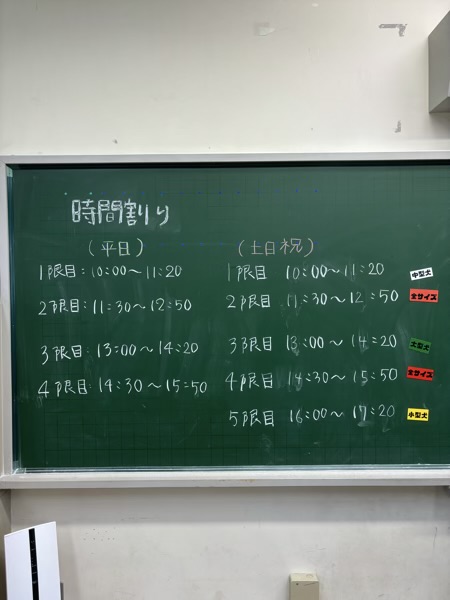 時間割り
(平日)
1限目:10:00～11:20
2限目:11:30～12:50
3限目:13:00～14:20
4限目:14:30～15:50
(土日祝)
1限目 10:00～11:20 中型犬
2限目 11:30～12:50 全サイズ
3限目 13:00～14:20 大型犬
4限目 14:30～15:50 全サイズ
5限目 16:00～17:20 小型犬